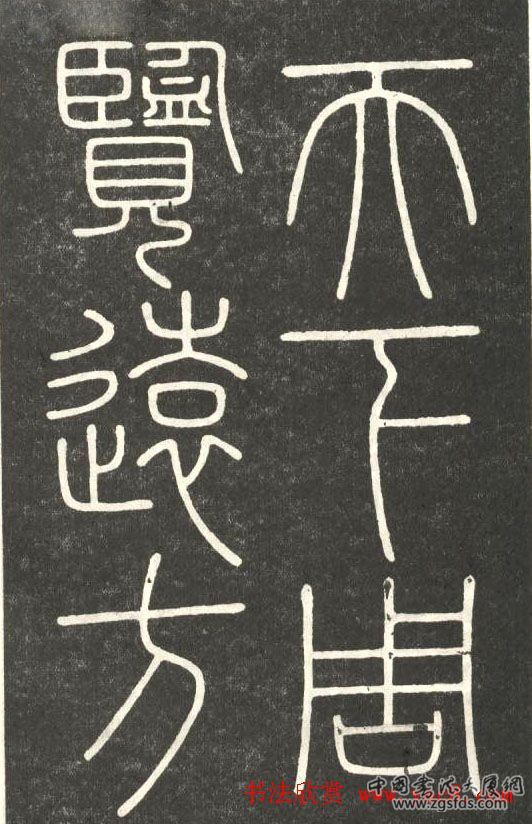 天下周
覽遠方
书法欣赏
中国书法大展网
www.zgsfds.com